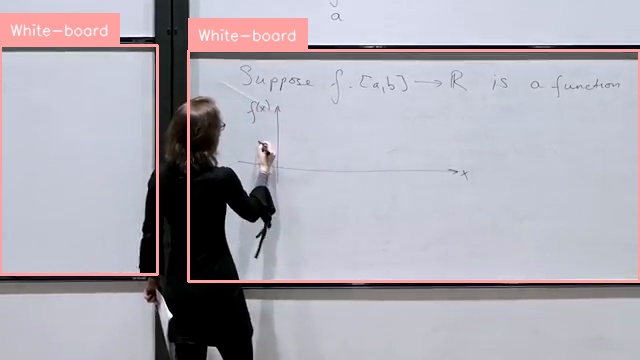 a
White-board
White-board
Suppose f: [a,b] → ℝ is a function
f(x)
x